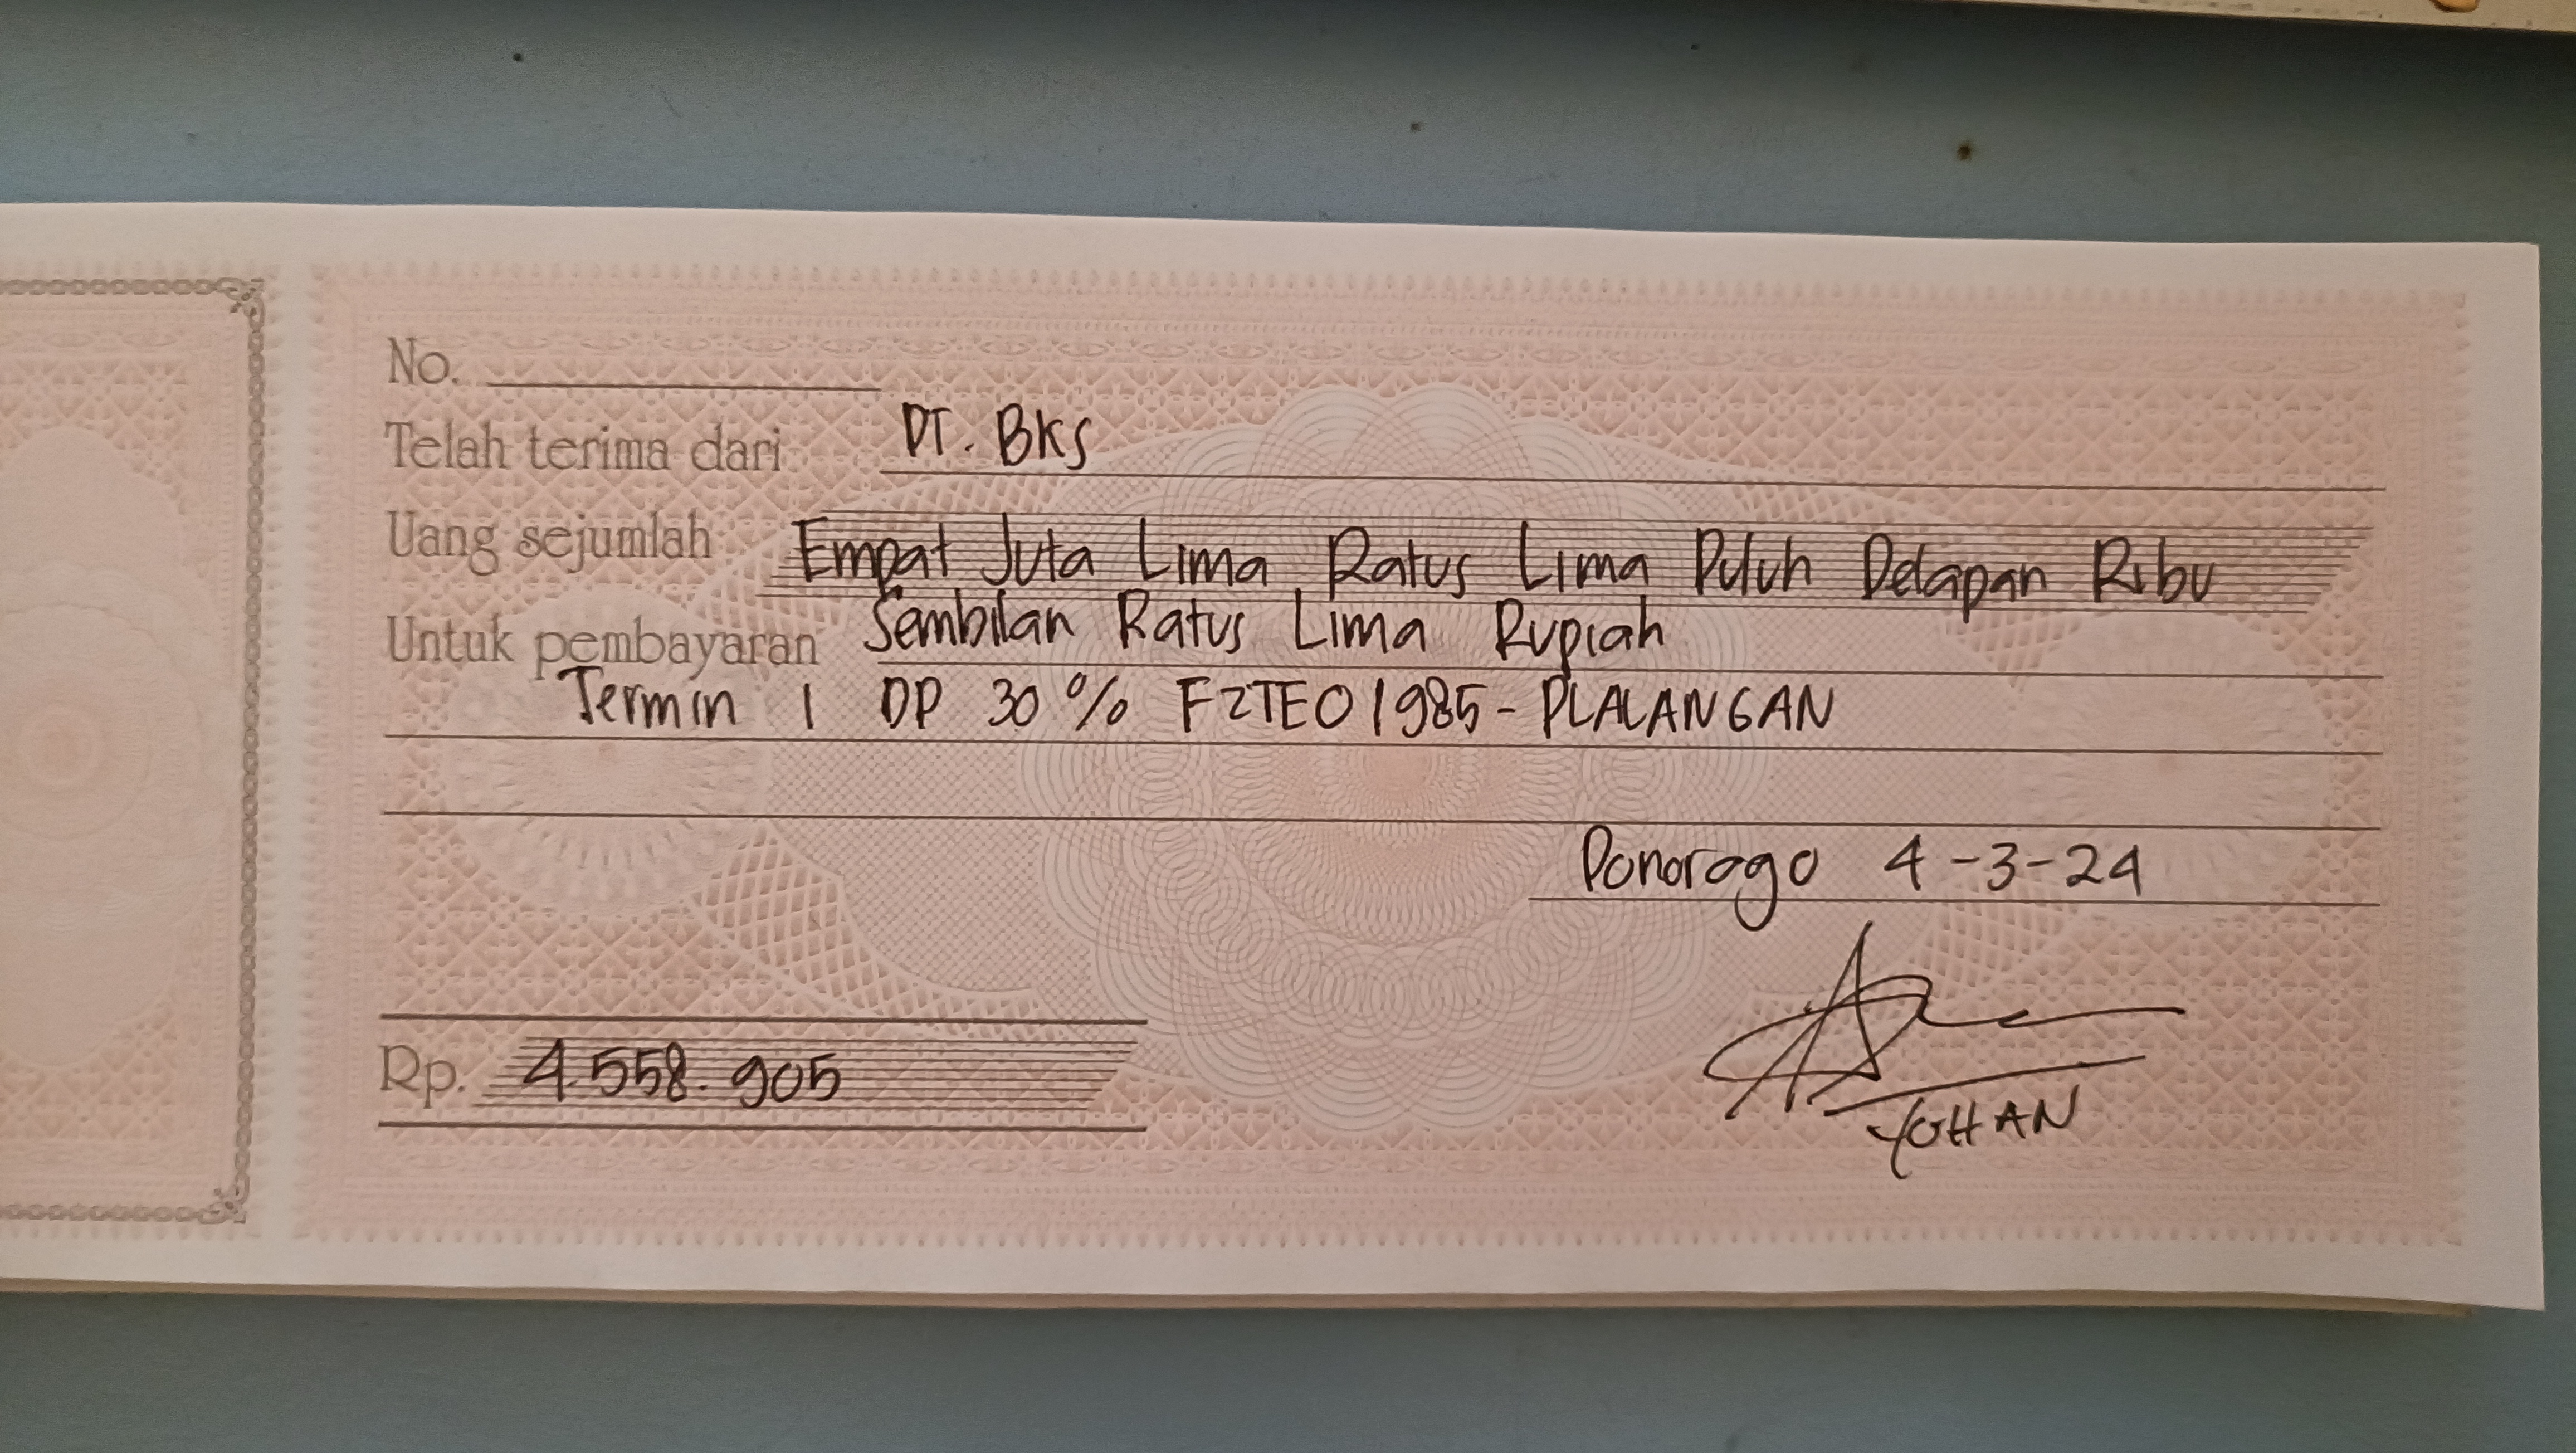 No.
Telah terima dari PT. BKS
Uang sejumlah Empat Juta Lima Ratus Lima Puluh Delapan Ribu
Sembilan Ratus Lima Rupiah
Untuk pembayaran
Termin 1 DP 30% FZTE01985-PLALANGAN
Ponorogo 4-3-24
Rp. 4.558.905
YOHAN